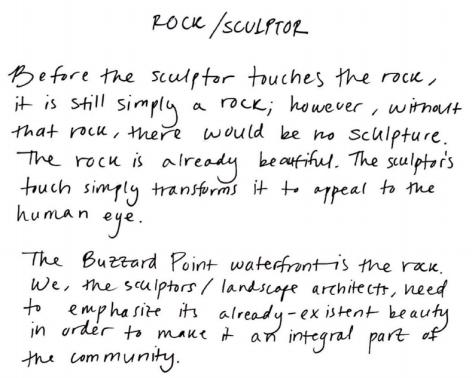 ROCK/SCULPTOR
Before the sculptor touches the rock,
it is still simply a rock; however, without
that rock, there would be no sculpture.
The rock is already beautiful. The sculptor's
touch simply transforms it to appeal to the
human eye.
The Buzzard Point waterfront is the rock.
We, the sculptors/landscape architects, need
to emphasize its already-existent beauty
in order to make it an integral part of
the community.